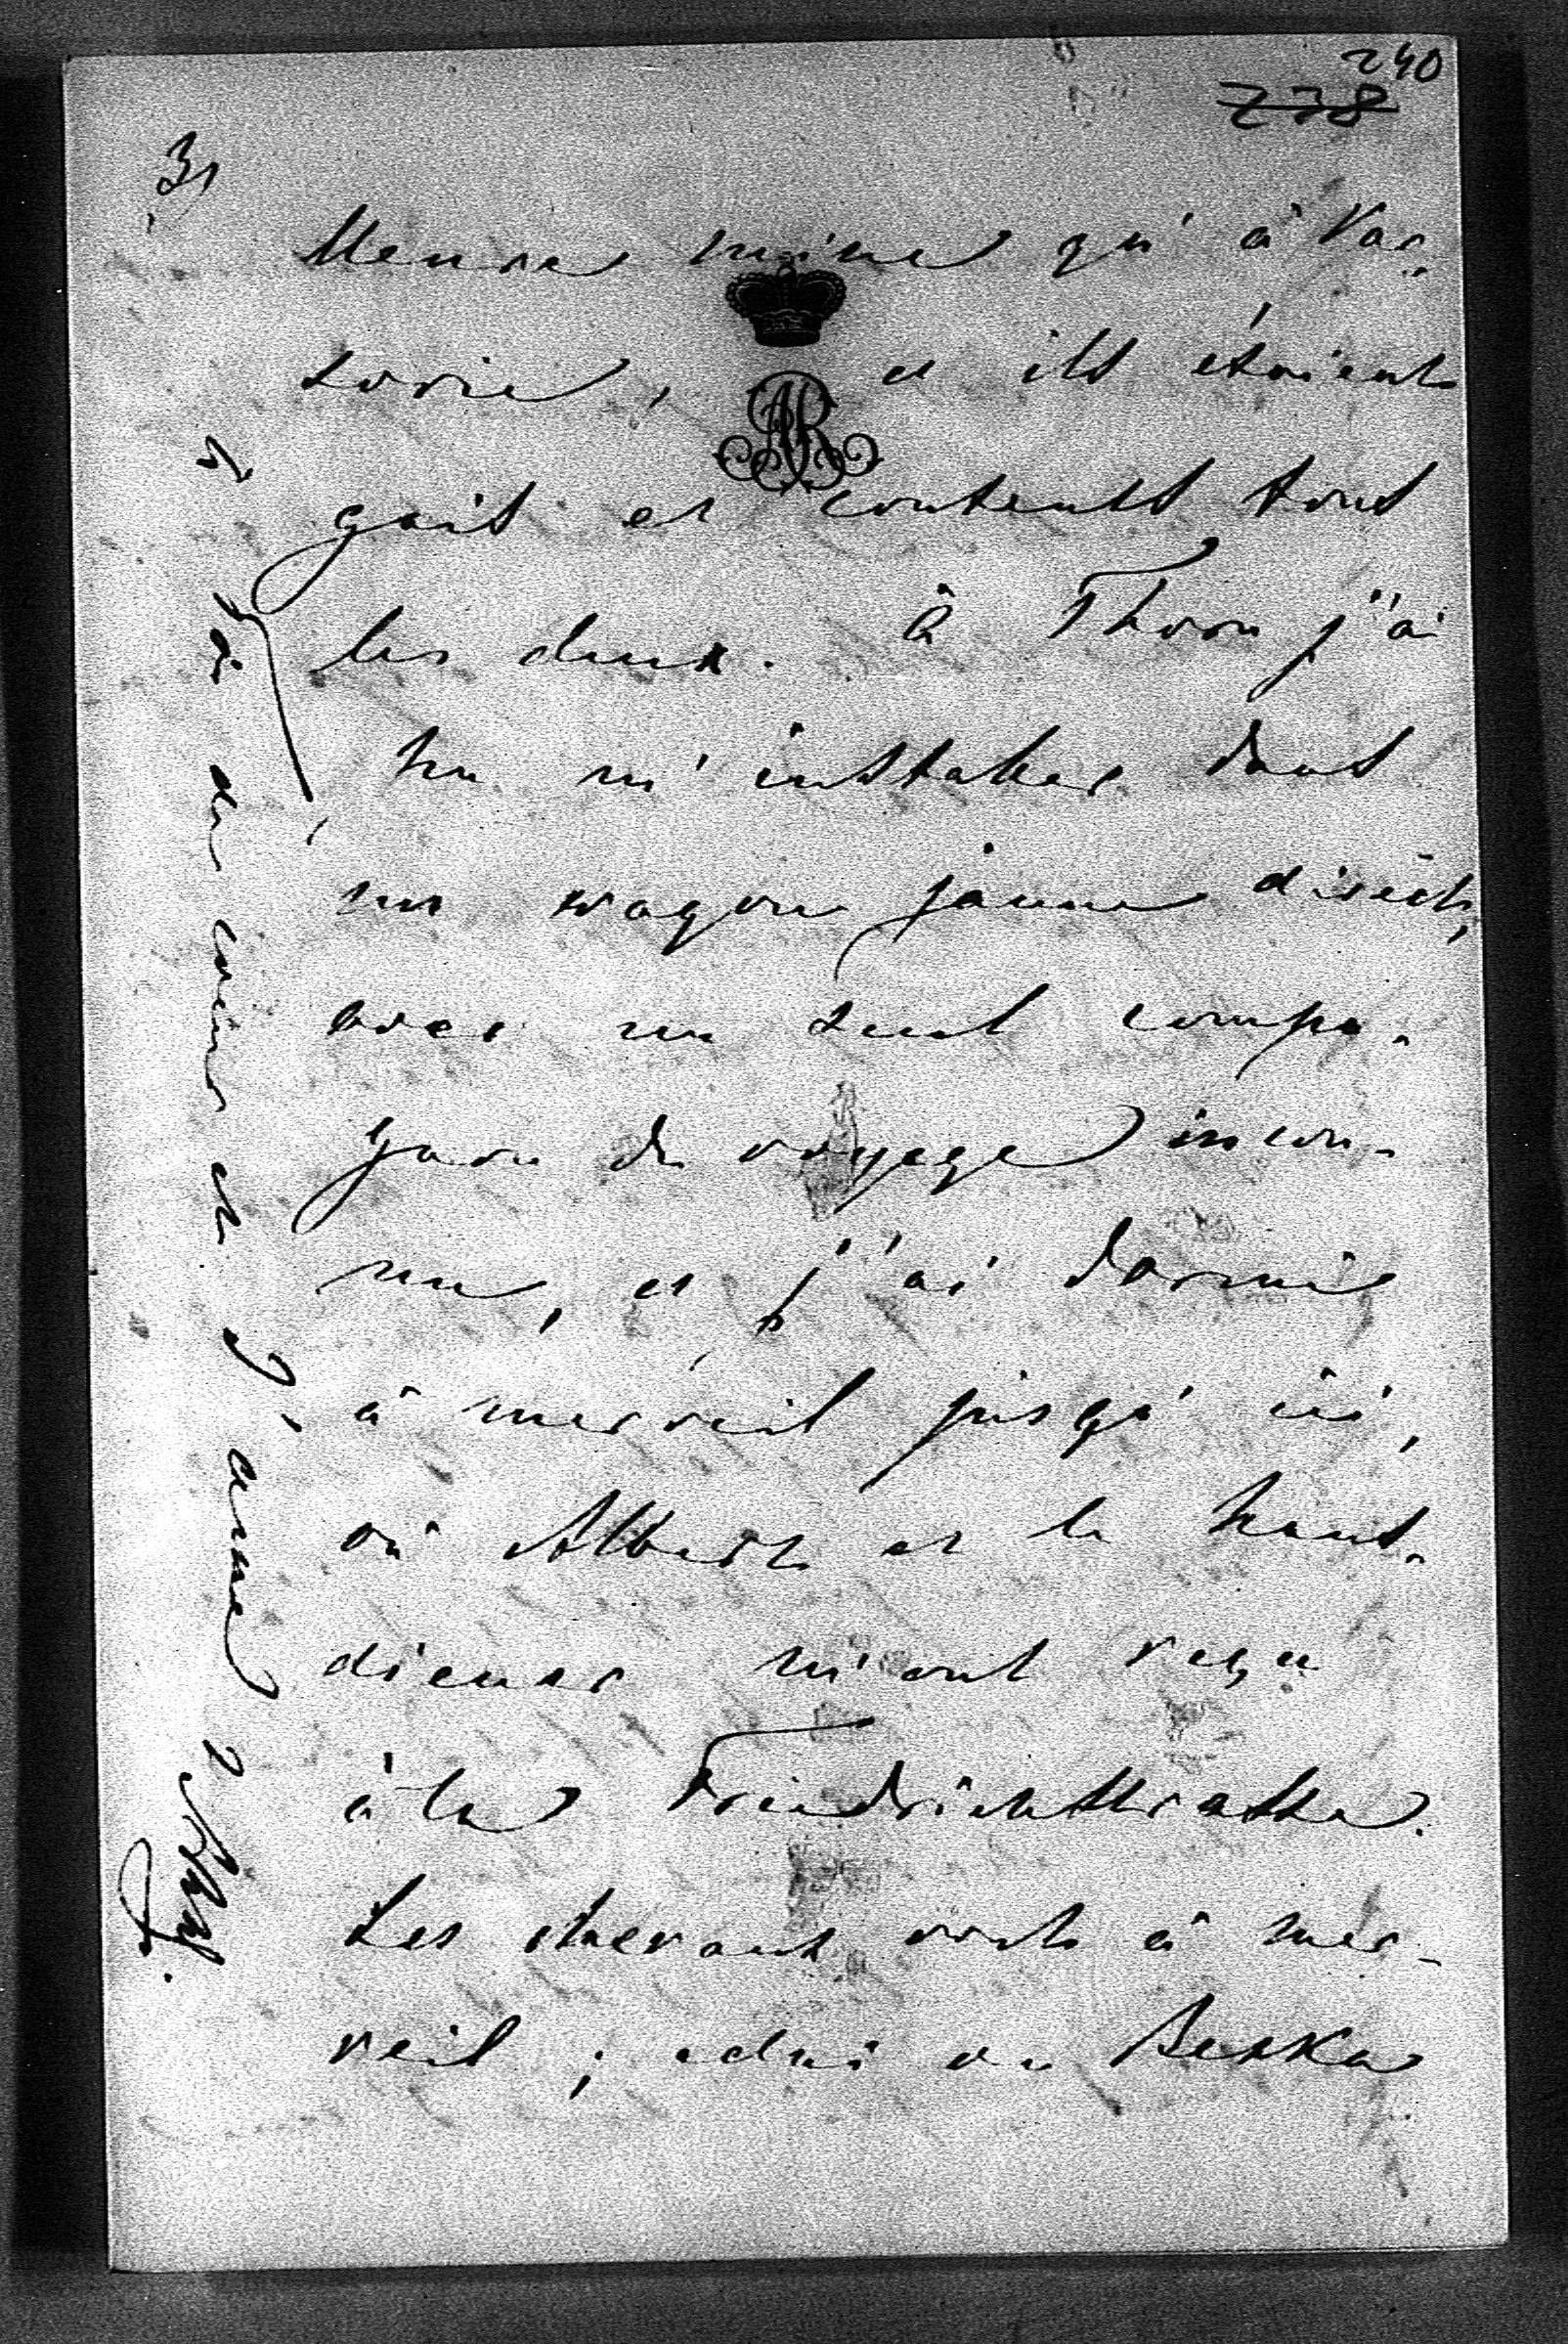 240
278
3)
Menra même qu'à Var-
sovie, et ils étaient
gais et contents tous
les deux. à Thorn j'ai
pu m'installer dans
un wagon jaune direct,
avec un seul compa-
gnon de voyage incon-
nu, et j'ai dormi
à merveil jusqu' ici,
où Albert et le haus-
diener m'ont reçu
à la Friedrichstrasse.
Les chevaux vont à mer-
veil; celui de Beska
de coeur et d'âme